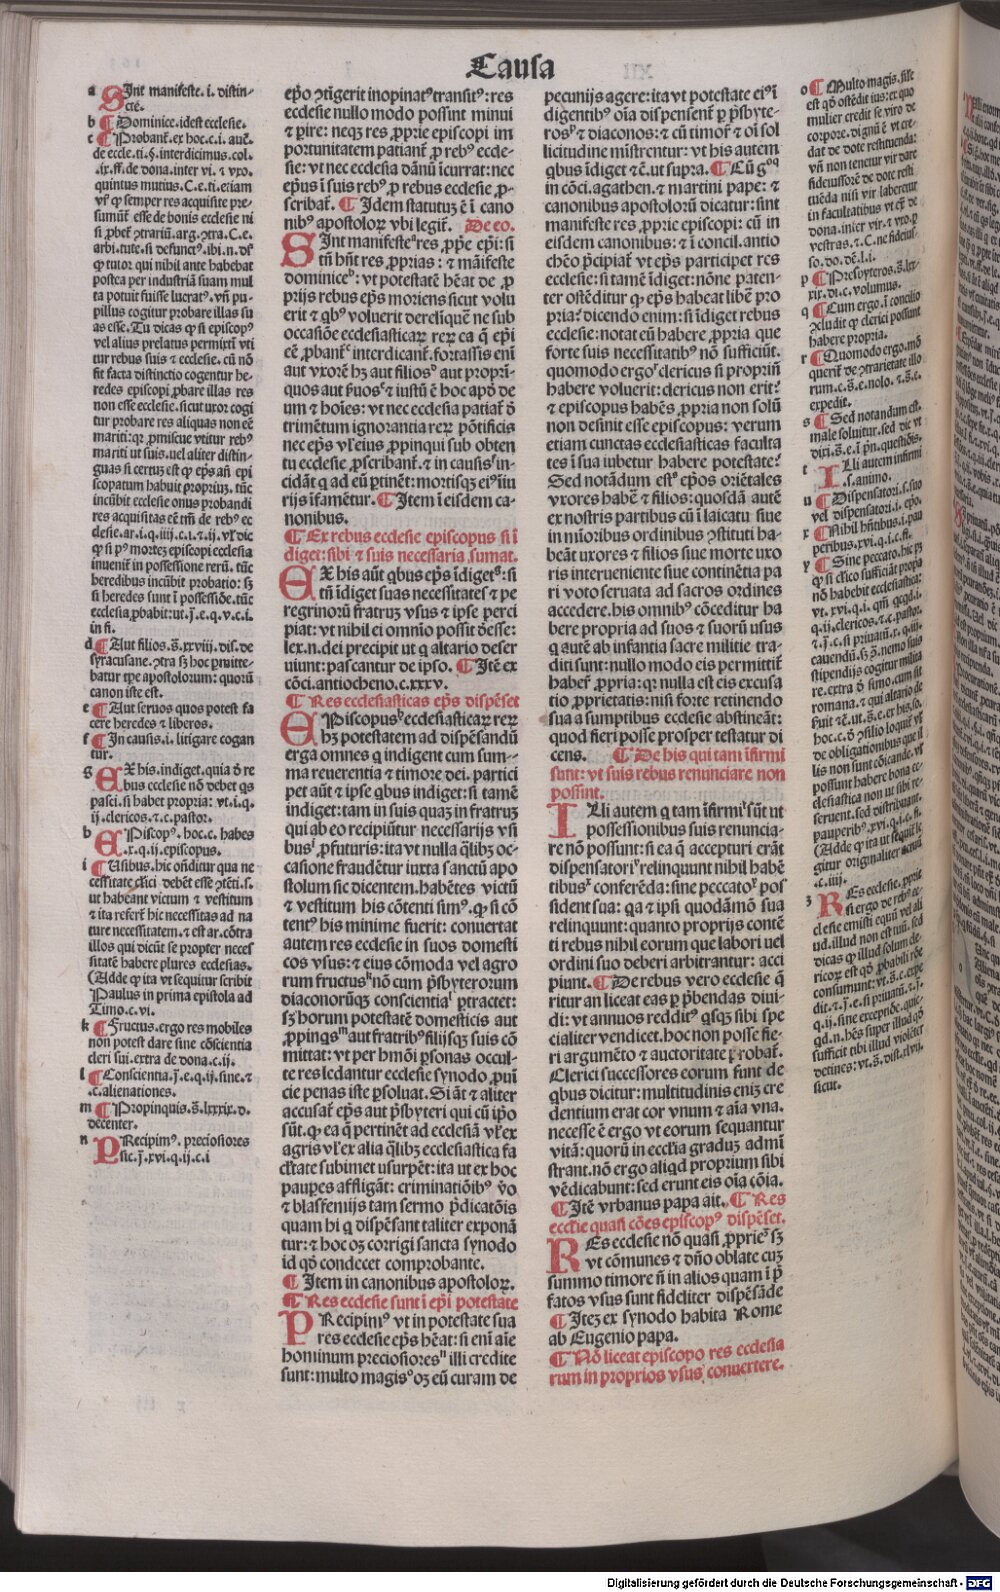 Causa
a Sint manifeste. i. distin-
cte.
b ¶ Dominice. idest ecclesie.
c ¶ Probant̄. ex hoc. c. i. auc̄.
de eccle. ti. §. interdicimus. col.
.ix. ff. de dona. inter vi. ⁊ vxo.
quintus mutius. C. e. ti. etiam
sumūt esse de bonis ecclesie ni
arbi. tute. si defunctꝰ. ibi. n. dr̄
ꝙ tutor qui nihil ante habebat
postea per industriā suam mul
ta potuit fuisse lucratꝰ. vn̄ pu-
pillus cogitur probare illas su
as esse. Tu dicas ꝙ si episcopꝰ
vel alius prelatus permixti vti
tur rebus suis ⁊ ecclesie. cū nō
sit facta distinctio cogentur he-
redes episcopi ꝓbare illas res
non esse ecclesie. sicut uxor cogi
tur probare res aliquas non eē
mariti: qr ꝓmiscue vtitur rebꝰ
mariti ut suis. uel aliter distin-
guas si certus est ꝙ ep̄s añ epi
scopatum habuit propriuꝫ. tūc
incūbit ecclesie onus probandi
res acquisitas eē tm̄ de rebꝰ ec
clesie. ar. i. q. iiij. c. i. ⁊ ij. vl̓ dic
ꝙ si pꝰ morteꝫ episcopi ecclesia
inuenit̄ in possessione rerū. tūc
heredibus incūbit probatio: sꝫ
si heredes sunt ī possessiōe. tūc
ecclesia ꝓbabit: ut. j̄. e. q. v. c. i.
in fi.
d ¶ Aut filios. s̄. xxviij. dis. de
syracusane. ↄtra sꝫ hoc ꝓmitte-
batur tpe apostolorum: quorū
canon iste est.
e ¶ Aut seruos quos potest fa
cere heredes ⁊ liberos.
f ¶ In causis. i. litigare cogan
tur.
g Ex his. indiget. quia ō re
bus ecclesie nō debet qs
pasci. si habet propria: vt. i. q.
ij. clericos. ⁊ c. pastor.
h Episcopꝰ. hoc. c. habes
.x. q. ij. episcopus.
i ¶ Usibus. hic on̄ditur qua ne
cessitate cl̓ici debēt esse ↄtēti. s.
ut habeant victum ⁊ vestitum
⁊ ita refert̄ hic necessitas ad na
ture necessitatem. ⁊ est ar. cōtra
illos qui dicūt se propter neces
sitatē habere plures ecclesias.
(Adde ꝙ ita vt sequitur scribit
Paulus in prima epistola ad
Timo. c. vi.
k ¶ Fructus. ergo res mobiles
non potest dare sine cōscientia
cleri sui. extra de dona. c. ij.
l ¶ Conscientia. j̄. e. q. ij. sine. ⁊
c. alienationes.
m ¶ Propinquis. s̄. lxxxix. d.
decenter.
n Precipimꝰ. preciosiores
sic. j̄. xvi. q. ij. c. i
ep̄o ↄtigerit inopinatꝰ transitꝰ: res
ecclesie nullo modo possint minui
⁊ ꝑire: neqꝫ res ꝓprie episcopi im
portunitatem patiant̄ ꝓ rebꝰ eccle-
sie: vt nec ecclesia dānū īcurrat: nec
ep̄us ī suis rebꝰ ꝓ rebus ecclesie ꝓ-
scribat̄. ¶ Idem statutuꝫ ē ī cano
nibꝰ apostoloꝝ vbi legit̄. De eo.
Sint manifesteᵃ res ꝓp̄e ep̄i: si
tn̄ hn̄t res ꝓprias: ⁊ māifeste
dominiceᵇ: vt potestatē hēat de ꝓ
prijs rebus ep̄s moriens sicut volu
erit ⁊ qbꝰ voluerit derelīquē: ne sub
occasiōe ecclesiasticaꝝ reꝝ ea q̄ ep̄i
eē ꝓbant̄ᶜ interdicant̄. fortassis eni
aut vxorē hꝫ aut filiosᵈ aut propri-
quos aut ẜuosᵉ ⁊ iustū ē hoc apō de
um ⁊ hoīes: vt nec ecclesia patiat̄ ō
trimētum ignorantia reꝝ pōtificis
nec ep̄s vl̓ eius ꝓpinqui sub obten
tu ecclesie ꝓscribant̄. ⁊ in causisᶠ in-
cidāt q ad eū ꝑtinēt: mortisqꝫ eiꝰ iiu
rijs īfamētur. ¶ Item ī eisdem ca-
nonibus.
¶ Ex rebus ecclesie episcopus si ī
diget: sibi ⁊ suis necessaria sumat.
Ex his aūt qbus ep̄s īdigetᵍ: si
tn̄ īdiget suas necessitates ⁊ pe
regrinorū fratruꝫ vsus ⁊ ipse perci
piat: vt nihil ei omnio possit deesse:
lex. n. dei precipit ut q altario deser
uiunt: pascantur de ipso. ¶ Itē ex
cōci. antiocheno. c. xxxv.
¶ Res ecclesiasticas ep̄s dispēset
Episcopusʰ ecclesiasticaꝝ reꝝ
hꝫ potestatem ad dispēsandū
erga omnes q indigent cum sum-
ma reuerentia ⁊ timore dei. partici
pet aūt ⁊ ipse qbus indiget: si tamē
indiget: tam in suis quaꝫ in fratruꝫ
qui ab eo recipiūtur necessarijs vsi
busⁱ ꝓfuturis: ita vt nulla qlibꝫ oc-
casione fraudētur iuxta sanctū apo
stolum sic dicentem. habētes victū
⁊ vestitum his cōtenti simꝰ. ꝙ si cō
tentꝰ his minime fuerit: conuertat
autem res ecclesie in suos domesti
cos vsus: ⁊ eius cōmoda vel agro
rum fructusᵏ nō cum p̄sbyterorum
diaconorūqꝫ conscientiaˡ ꝑtractet:
sꝫ horum potestatē domesticis aut
ꝓpinqsᵐ aut fratribꝰ filijsqꝫ suis cō
mittat: vt per hmōi ꝑsonas occul-
te res ledantur ecclesie synodo ꝓuī
cie penas iste ꝑsoluat. Si āt ⁊ aliter
accusat̄ ep̄s aut p̄sbyteri qui cū ip̄o
sūt. ꝙ ea q̄ pertinēt ad ecclesiā vl̓ ex
agris vl̓ ex alia qlibꝫ ecclesiastica fa
cl̓tate sibimet usurpēt: ita ut ex hoc
pauꝑes affligāt: criminatiōibꝰ v̓o
⁊ blasfemijs tam sermo p̄dicatōis
quam hi q dispēsant taliter exponā
tur: ⁊ hoc oꝫ corrigi sancta synodo
id qd̓ condecet comprobante.
¶ Item in canonibus apostoloꝝ.
¶ Res ecclesie sunt ī ep̄i potestate
Precipimꝰ vt in potestate sua
res ecclesie ep̄s hēat: si eni aīe
hominum preciosioresⁿ illi credite
sunt: multo magisᵒ oꝫ eū curam de
pecunijs agere: ita vt potestate eiꝰ ī
digentibꝰ oīa dispensent̄ ꝑ p̄sbyte-
rosᵖ ⁊ diaconos: ⁊ cū timor̄ ⁊ oī sol
licitudine mīstrentur: vt his autem
qbus īdiget ⁊ c̄. ut supra. ¶ Cū gᵒ
in cōci. agathen. ⁊ martini pape: ⁊
canonibus apostolorū dicatur: sint
manifeste res ꝓprie episcopi: cū in
eisdem canonibus: ⁊ ī concil. antio
chēo p̄cipiat̄ vt ep̄s participet res
ecclesie: si tamē īdiget: nōne paten-
ter ostēditur ꝙ ep̄s habeat libē pro
pria? dicendo enim: si īdiget rebus
ecclesie: notat eū habere ꝓpria que
forte suis necessitatibꝰ nō sufficiūt.
quomodo ergoʳ clericus si propriū
habere voluerit: clericus non erit?
⁊ episcopus habēs ꝓpria non solū
non desinit esse episcopus: verum
etiam cunctas ecclesiasticas faculta
tes ī sua iubetur habere potestate?
Sed notādum estˢ ep̄os oriētales
vxores habē ⁊ filios: quosdā autē
ex nostris partibus cū ī laicatu siue
in miōribus ordinibus ↄstituti ha-
beāt uxores ⁊ filios siue morte uxo
ris interueniente siue continētia pa
ri voto seruata ad sacros ordines
accedere. his omnibꝰ cōceditur ha
bere propria ad suos ⁊ suorū usus
q autē ab infantia sacre militie tra-
diti sunt: nullo modo eis permittit̄
haber̄ ꝓpria: qr nulla est eis excusa
tio ꝓprietatis: nisi forte retinendo
sua a sumptibus ecclesie abstineāt:
quod fieri posse prosper testatur di
cens. ¶ De his qui tam īfirmi
sunt: vt suis rebus renunciare non
possint.
Illi autem q tam īfirmiᵗ sūt ut
possessionibus suis renuncia-
re nō possunt: si ea q̄ accepturi erāt
dispensatoriᵘ relinquunt nihil habē
tibusˣ conferēda: sine peccatoʸ pos
sident sua: qa ⁊ ipsi quodāmō sua
relinquunt: quanto proprijs contē
ti rebus nihil eorum que labori uel
ordini suo deberi arbitrantur: acci
piunt. ¶ De rebus vero ecclesie q̄
ritur an liceat eas ꝑ p̄bendas diui-
di: vt annuos redditꝰ qsqꝫ sibi spe
cialiter vendicet. hoc non posse fie-
ri argumēto ⁊ auctoritate ꝓbat̄.
Clerici successores eorum sunt de
qbus dicitur: multitudinis eniꝫ cre
dentium erat cor vnum ⁊ aīa vna.
necesse ē ergo vt eorum sequantur
vitā: quorū in eccl̓ia graduꝫ admi
strant. nō ergo aliqd proprium sibi
vēdicabunt: sed erunt eis oīa cōia.
¶ Itē vrbanus papa ait. ¶ Res
eccl̓ie quasi cōes episcopꝰ dispēset.
Res ecclesie nō quasi ꝓprieᶻ sꝫ
vt cōmunes ⁊ dn̄o oblate cuꝫ
summo timore n̄ in alios quam ī p̄
fatos vsus sunt fideliter dispēsāde
¶ Iteꝫ ex synodo habita Rome
ab Eugenio papa.
¶ Nō liceat episcopo res ecclesia
rum in proprios vsus conuertere.
o ¶ Multo magis. sile
est qd̓ ostēdit ius: ex quo
mulier credit se viro de
corpore. dignū ē vt cre-
dat de dote restituenda:
vn̄ non tenetur vir dare
fideiussorē de dote resti
tuēda nisi vir laboretur
in facultatibus vt eꝫ de
dona. inter vir. ⁊ vxo. ꝑ
vestras. ⁊ C. ne fideius-
so. do. de. l. i.
p ¶ Presbyteros. s̄. lxx-
xix. di. c. volumus.
q ¶ Cum ergo. ī concilio
ↄcludit ꝙ clerici possunt
habere propria.
r ¶ Quomodo ergo. mō
querit̄ de ↄtrarietate illo
rum. c. s̄. e. nolo. ⁊ s̄. e.
expedit.
s ¶ Sed notandum est.
male soluitur. sed dic vt
dixi. s̄. e. ī prin. questiōis.
t Illi autem infirmi
.s. animo.
u ¶ Dispensatori. s. suo
vel dispensatori. i. ep̄o.
x ¶ Nihil hn̄tibus. i. pau
peribus. xvi. q. i. c. fi.
y ¶ Sine peccato. hic pꝫ
ꝙ si cl̓ico sufficiāt propa
nō habebit ecclesiastica:
vt. xvi. q. i. qm̄ qcqd. i.
q. ij. clericos. ⁊ c. pastor.
stipendijs cogitur milita
re. extra ō simo. cum sit
romana. ⁊ qui altario de
de obligationibus que il
lis non sunt cōicande. vt
possunt habere bona ec-
clesiastica non ut sibi re-
seruent. sed distribuant.
pauperibꝰ. xvi. q. i. c. fi.
(Adde ꝙ ita ut sequit̄ le
gitur originaliter
.c. iiij.
z Res ecclesie. ꝓprie
si ergo de rebꝰ ec-
clesie emisti equū vel ali
ud. illud non est tuū. sed
dicas ꝙ illud solum de-
ricoꝝ est qd̓ ꝓbabili rōe
consumunt: vt. s̄. c. expe
dit. ⁊. j̄. e. si priuatū. ⁊. j̄.
q. ij. sine exceptiōe. quic-
qd. n. hēs super illud qd̓
sufficit tibi illud violēter
detines: vt. s̄. dist. xlvij.
sicut.
Digitalisierung gefördert durch die Deutsche Forschungsgemeinschaft - DFG